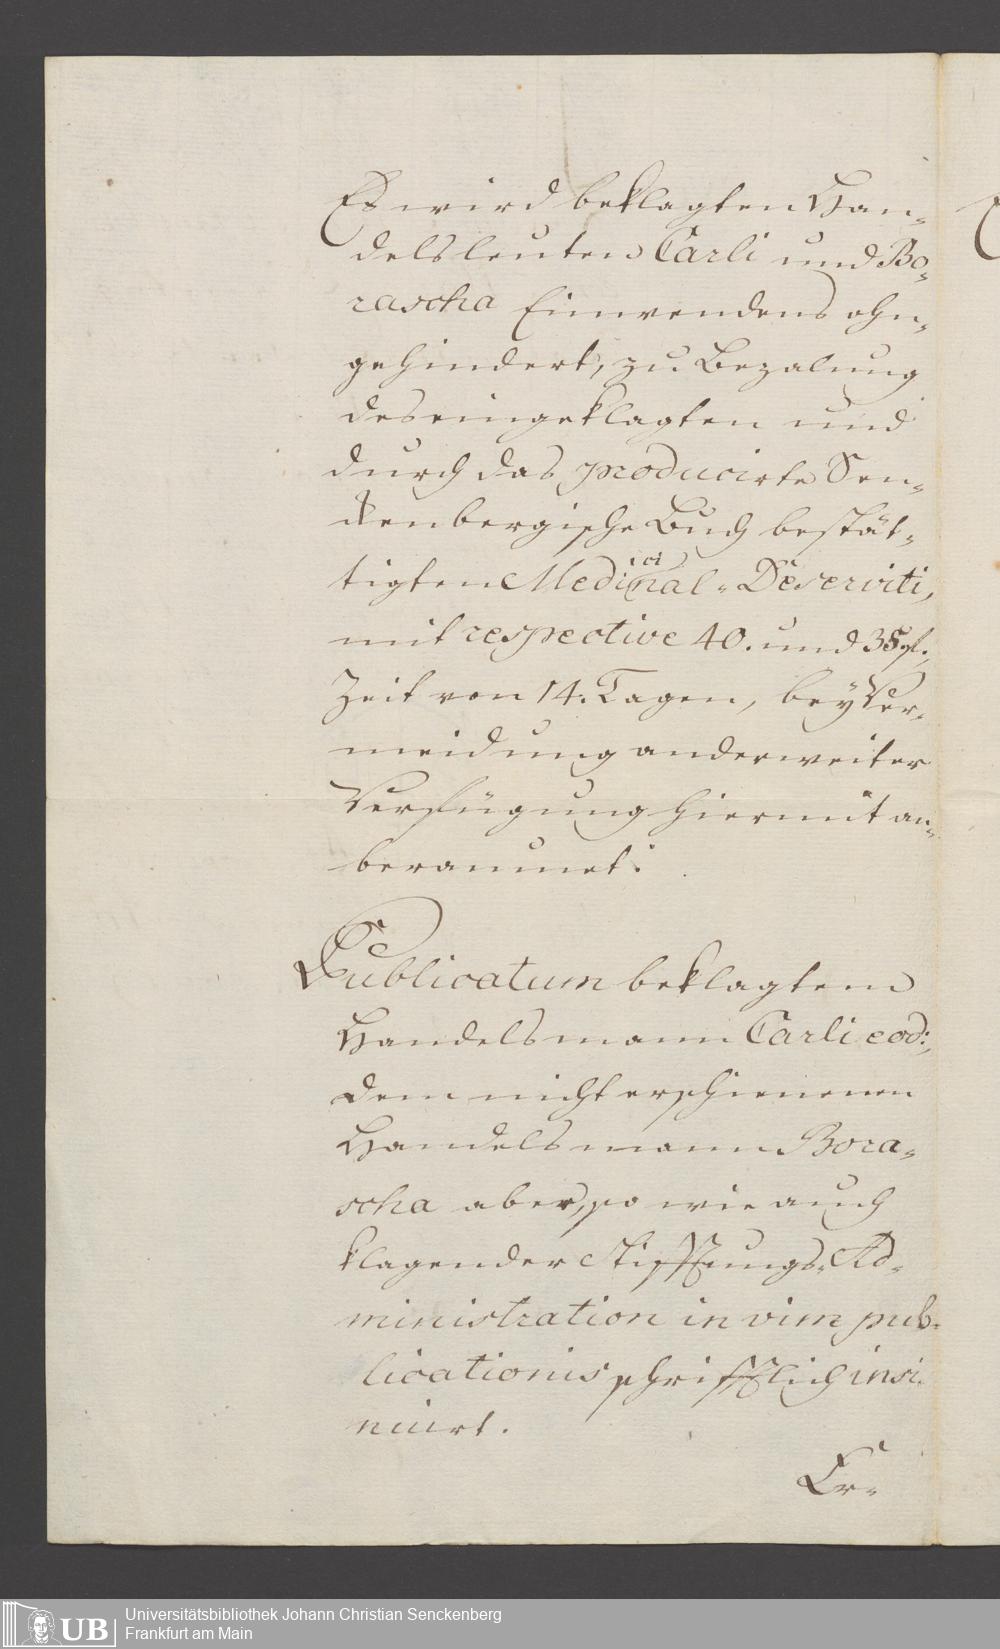 Es wird beklagten Han-
delsleuten Carli und Bo-
rascha Einwendens ohn-
gehindert, zu Bezalung
des eingeklagten und
durch das producirte Sen-
ckenbergische Buch bestät-
tigten Medicinal-Deserviti,
mit respective 40. und 38 fl.,
Zeit von 14. Tagen, bey Ver-
meidung anderweiter
Verfügung hiermit an-
beraumet.
Publicatum beklagtem
Handelsmann Carli eod:,
dem nicht erschienenen
Handelsmann Bora-
scha aber, so wie auch
klagender Stifftungs-Ad-
ministration in vim pub-
licationis schrifftlich insi-
nuirt.
Er-
UB
Universitätsbibliothek Johann Christian Senckenberg
Frankfurt am Main